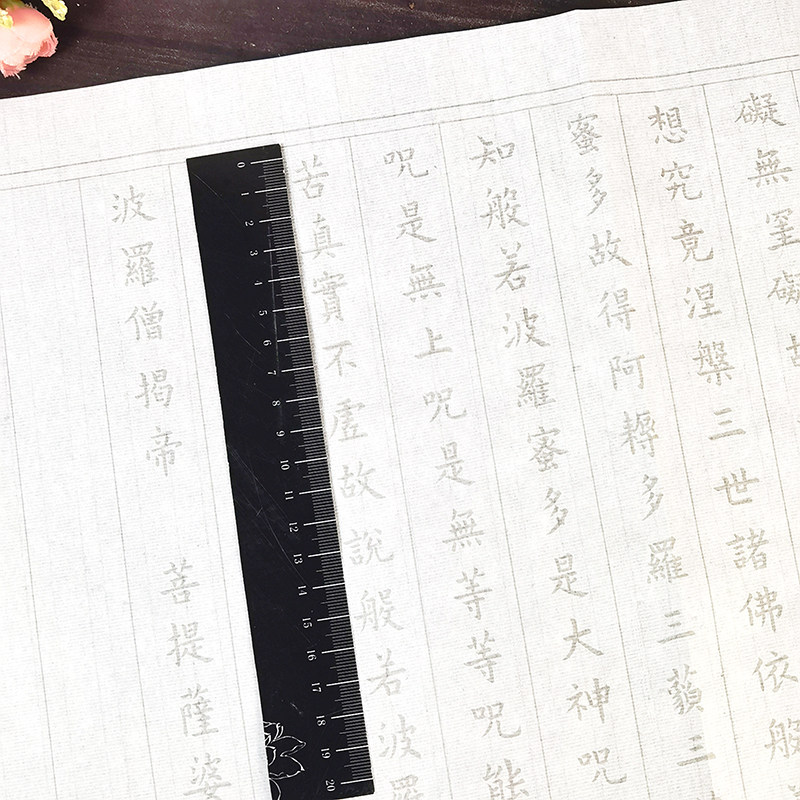 礙無罣礙故
想究竟涅槃三世諸佛依般
蜜多故得阿耨多羅三藐三
知般若波羅蜜多是大神咒
呪是無上呪是無等等呪能
苦真實不虛故說般若波羅
波羅僧揭帝 菩提薩婆
0 1 2 3 4 5 6 7 8 9 10 11 12 13 14 15 16 17 18 19 20